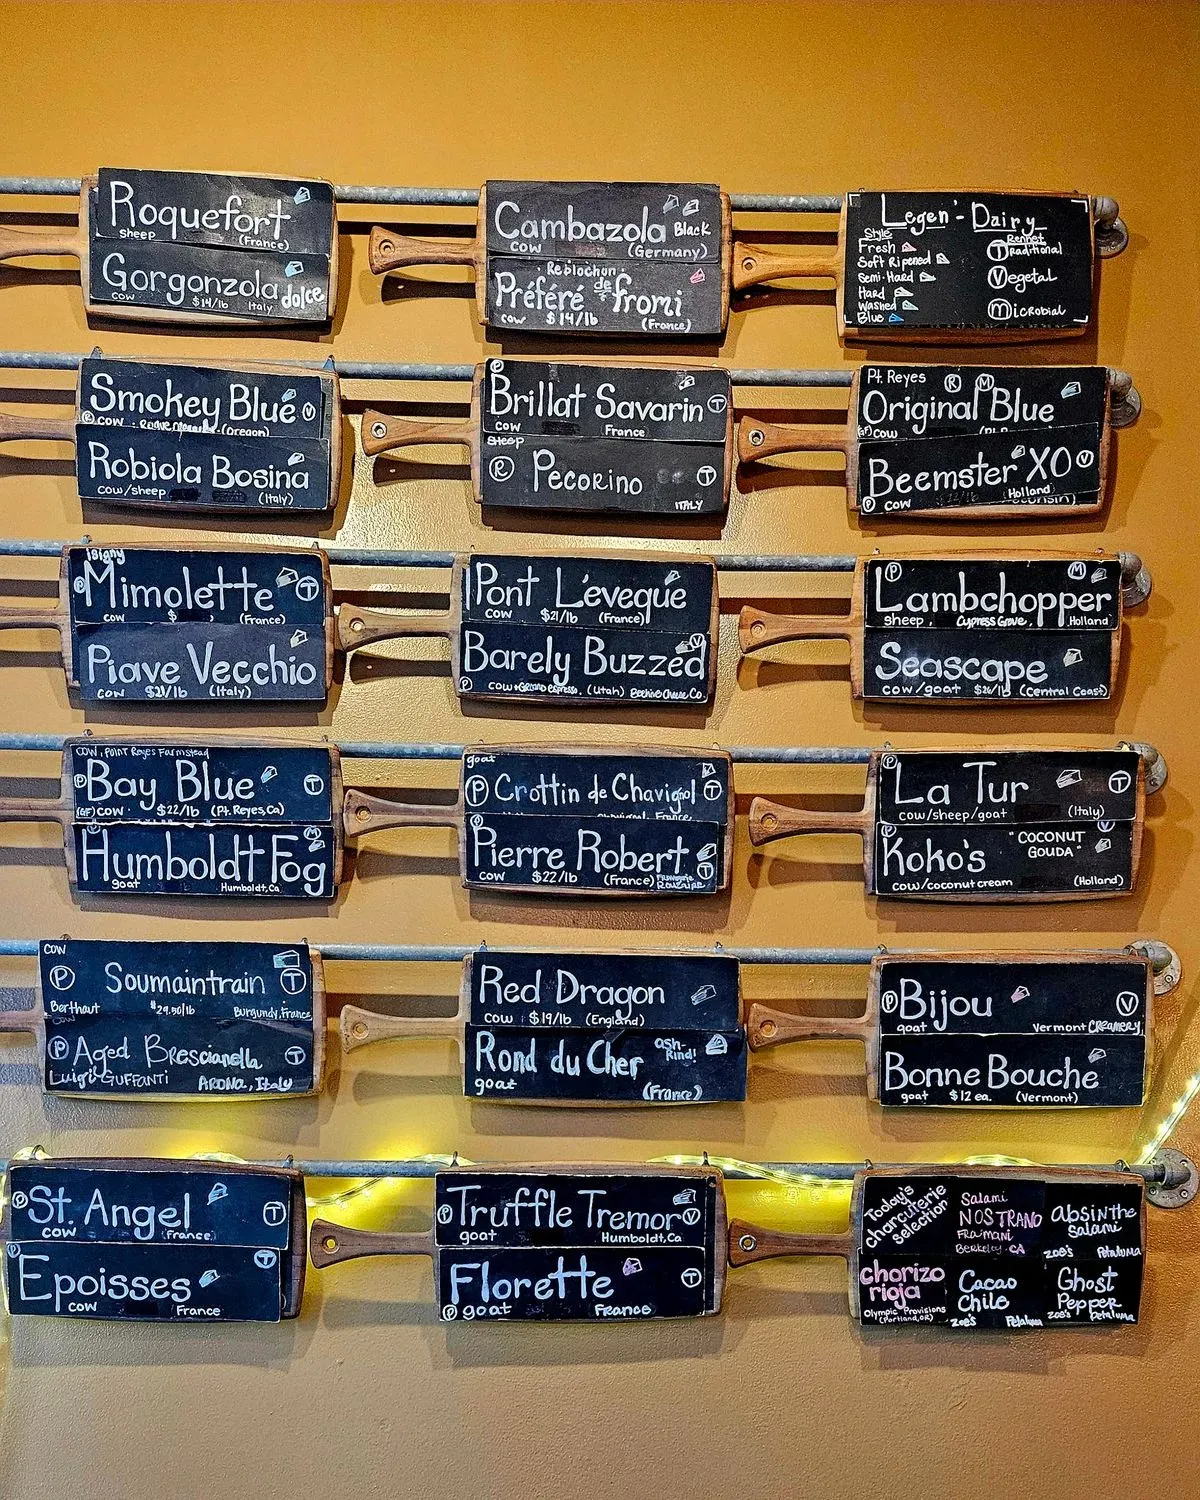 Roquefort
sheep
(France)
Gorgonzola dolce
cow $14/lb Italy
Cambazola Black
cow (Germany)
Reblochon
Préféré de fromi
cow $14/lb (France)
Legen'-Dairy
Style
Fresh
Soft Ripened
Semi-Hard
Hard
Washed
Blue
Rennet
Traditional
Vegetal
Microbial
Smokey Blue V
R cow (Oregon)
Robiola Bosina
cow/sheep (Italy)
P
Brillat Savarin T
cow France
Sheep
R Pecorino T
ITALY
Pt. Reyes R M
Original Blue
(GF) cow
Beemster XO V
P cow Holland
isigny
P Mimolette T
cow $ (France)
Piave Vecchio
cow $21/lb (Italy)
Pont L'éveque
cow $21/lb (France)
Barely Buzzed V
P cow + Ground espresso, (Utah) Beehive Cheese Co.
P M
Lambchopper
sheep, Cypress Grove, Holland
Seascape
cow/goat $26/lb (Central Coast)
cow, Point Reyes Farmstead
P Bay Blue T
(GF) cow $22/lb (Pt. Reyes, Ca)
M
Humboldt Fog
goat Humboldt, Ca
goat
P Crottin de Chavignol T
P
Pierre Robert T
cow $22/lb (France) Fromagerie Rouzaire
P
La Tur T
cow/sheep/goat (Italy)
P V
Koko's "COCONUT GOUDA"
cow/coconut cream (Holland)
cow
P Soumaintrain T
Berthaut $29.50/lb Burgundy, France
cow
P Aged Brescianella T
Luigi GUFFANTI ARONA, Italy
Red Dragon
cow $19/lb (England)
Rond du Cher ash-Rind!
goat (France)
P Bijou V
goat Vermont CREAMERY
Bonne Bouche
goat $12 ea. (Vermont)
P St. Angel T
cow (France)
P
Epoisses T
cow France
P Truffle Tremor V
goat Humboldt, Ca
Florette T
P goat FRANCE
Today's
charcuterie
selection
Salami
NOSTRANO
FRA'MANI
Berkeley, CA
absinthe
salami
zoe's Petaluma
chorizo
rioja
Olympic Provisions
(Portland, OR)
Cacao
Chile
zoe's Petaluma
Ghost
Pepper
zoe's Petaluma